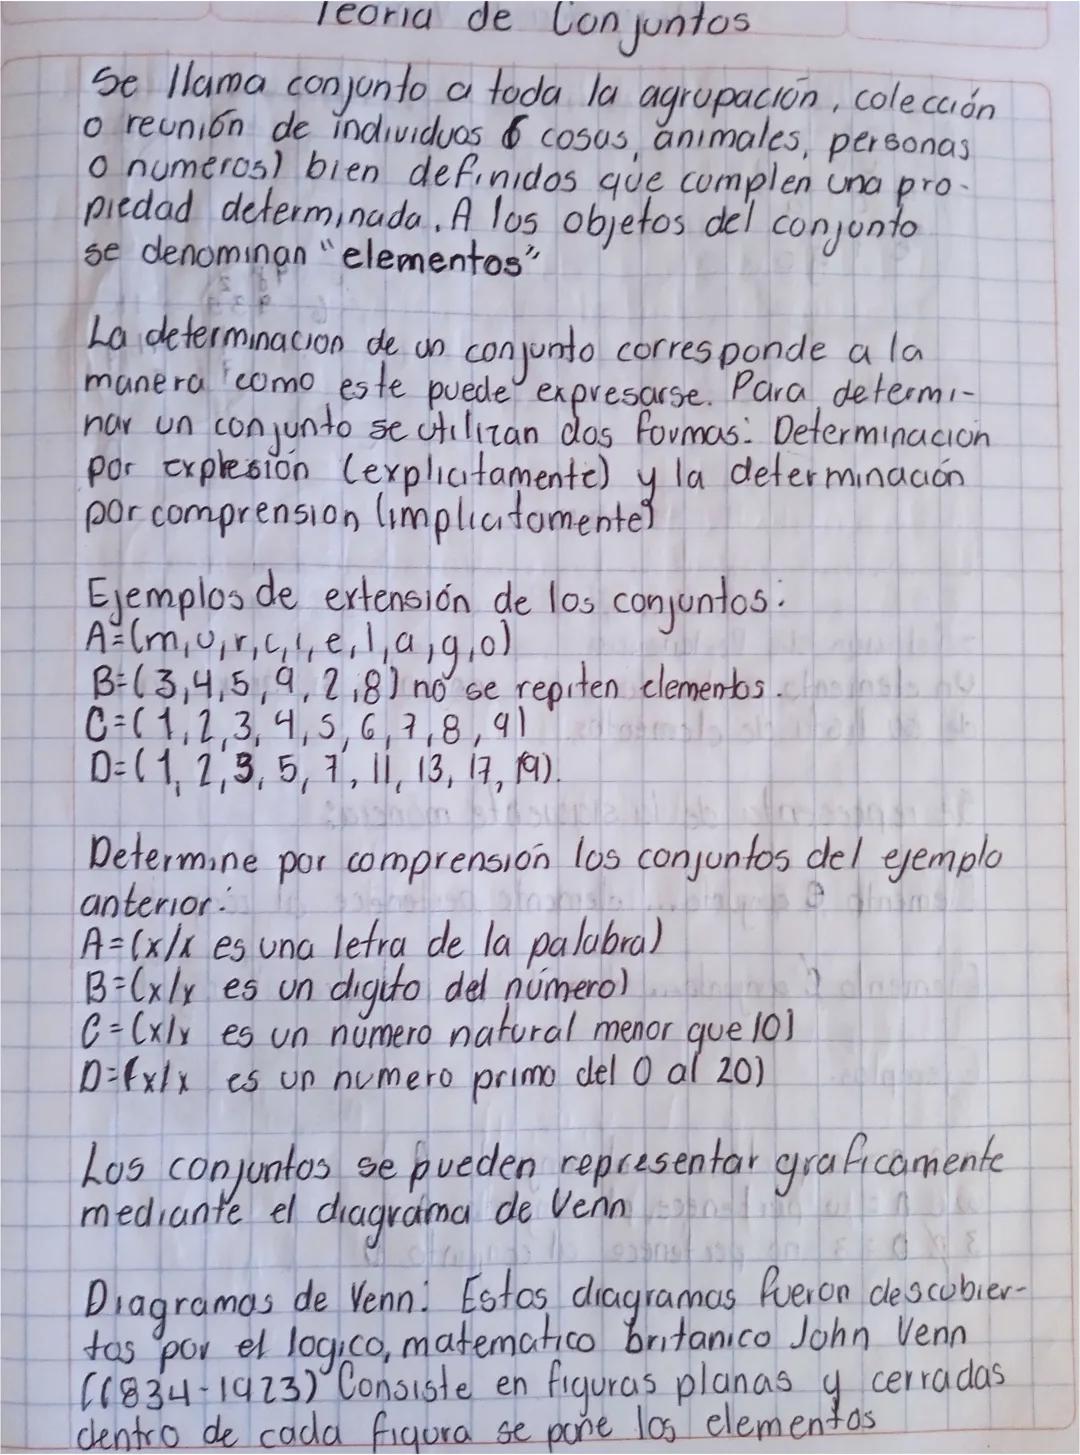 Teoria de Conjuntos
Se llama conjunto a toda la agrupación, colección
o reunión de individuos ó cosas, animales, personas
o numeros) bien definidos que cumplen una pro-
piedad determinada. A los objetos del conjunto
se denominan "elementos"
La determinacion de un conjunto corresponde a la
manera como este puede expresarse. Para determi-
nar un conjunto se utilizan dos formas: Determinacion
por explesión (explicitamente) y la determinación
por comprension (implicitamente)
Ejemplos de extensión de los conjuntos:
A=(m,u,r,c,i,e,l,a,g,o)
B=(3,4,5,9,2,8) no se repiten elementos.
C=(1,2,3,4,5,6,7,8,9)
D=(1,2,3,5,7,11,13,17,19).
Determine por comprensión los conjuntos del ejemplo
anterior:
A=(x/x es una letra de la palabra)
B=(x/x es un digito del número)
C=(x/x es un número natural menor que 10)
D=(x/x es un numero primo del 0 al 20)
Los conjuntos se pueden representar graficamente
mediante el diagrama de Venn
Diagramas de Venn: Estos diagramas fueron descubier-
tos por el logico, matematico britanico John Venn
(1834-1923) Consiste en figuras planas y cerradas
dentro de cada figura se pone los elementos